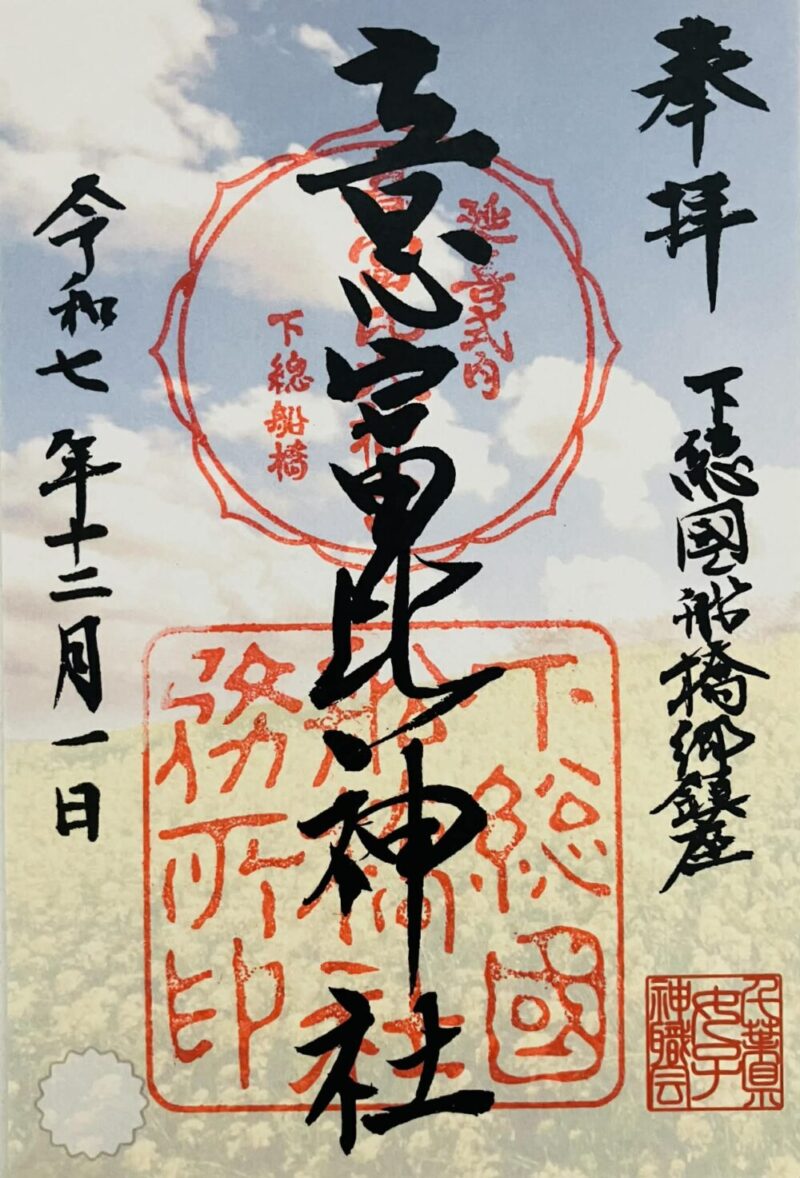 奉拝
下総國船橋郷鎮座
意富比神社
令和七年十二月一日
延喜式内
意富比神社
下總船橋
下総國
船橋社
務所印
千葉県
女子
神職会